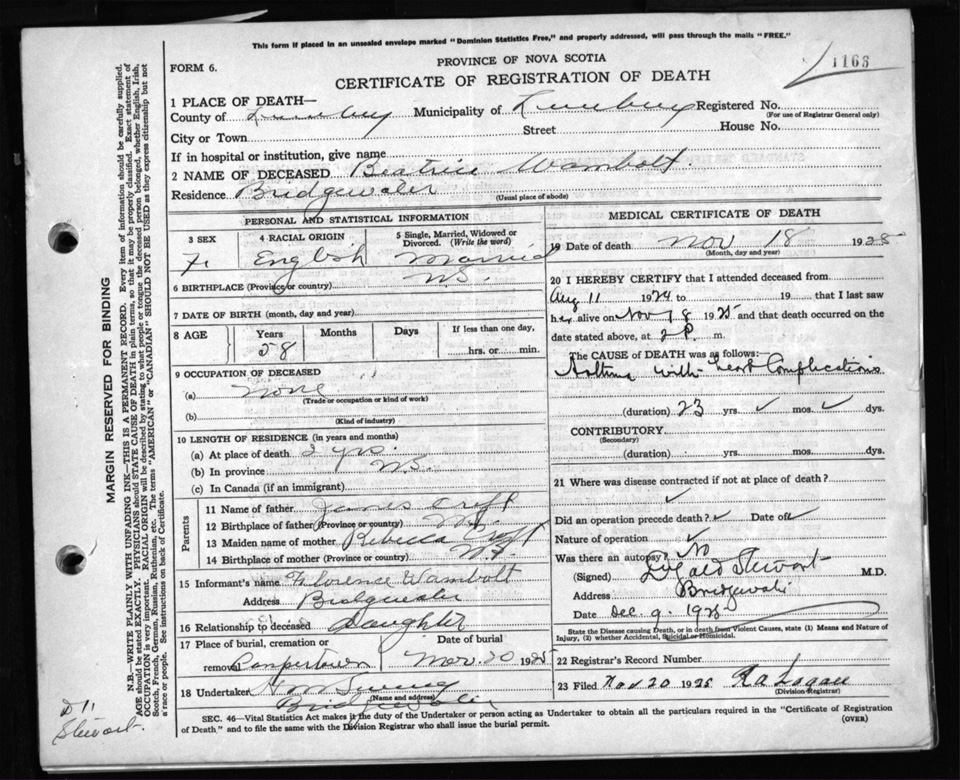 This form if placed in an unsealed envelope marked "Dominion Statistics Free," and properly addressed, will pass through the mails "FREE."
FORM 6.
PROVINCE OF NOVA SCOTIA
CERTIFICATE OF REGISTRATION OF DEATH
1166
1 PLACE OF DEATH—
County of Lunenburg Municipality of Lunenburg Registered No.
(For use of Registrar General only)
City or Town Street House No.
If in hospital or institution, give name
2 NAME OF DECEASED Beatrice Wambolt
Residence Bridgewater
(Usual place of abode)
PERSONAL AND STATISTICAL INFORMATION
3 SEX 4 RACIAL ORIGIN 5 Single, Married, Widowed or Divorced. (Write the word)
F. English Married
6 BIRTHPLACE (Province or country) N.S.
7 DATE OF BIRTH (month, day and year)
8 AGE Years Months Days If less than one day,
58 hrs. or min.
9 OCCUPATION OF DECEASED
(a) none
(Trade or occupation or kind of work)
(b)
(Kind of industry)
10 LENGTH OF RESIDENCE (in years and months)
(a) At place of death yrs.
(b) In province N.S.
(c) In Canada (if an immigrant)
Parents
11 Name of father James Croft
12 Birthplace of father (Province or country)
13 Maiden name of mother Rebecca
14 Birthplace of mother (Province or country)
15 Informant's name Florence Wambolt
Address Bridgewater
16 Relationship to deceased Daughter
17 Place of burial, cremation or removal Date of burial
Conquertown Nov. 20 1925
18 Undertaker
(Name and address)
Bridgewater
MEDICAL CERTIFICATE OF DEATH
19 Date of death Nov 18 1925
(Month, day and year)
20 I HEREBY CERTIFY that I attended deceased from
Aug 11 1924 to 19 that I last saw
her alive on Nov 8 1925 and that death occurred on the
date stated above, at 2 P. m.
The CAUSE of DEATH was as follows:
Asthma with heart Complications
(duration) 23 yrs. ✓ mos. ✓ dys.
CONTRIBUTORY
(Secondary)
(duration) yrs. mos. dys.
21 Where was disease contracted if not at place of death?
✓
Did an operation precede death? ✓ Date of ✓
Nature of operation ✓
Was there an autopsy? No
(Signed) Stewart M.D.
Address Bridgewater
Date Dec. 9. 1925
State the Disease causing Death, or in death from Violent Causes, state (1) Means and Nature of Injury, (2) whether Accidental, Suicidal or Homicidal.
22 Registrar's Record Number
23 Filed Nov 20 1925
(Division Registrar)
SEC. 46—Vital Statistics Act makes it the duty of the Undertaker or person acting as Undertaker to obtain all the particulars required in the "Certificate of Registration
of Death" and to file the same with the Division Registrar who shall issue the burial permit. (OVER)
MARGIN RESERVED FOR BINDING
N.B.—WRITE PLAINLY WITH UNFADING INK—THIS IS A PERMANENT RECORD. Every item of information should be carefully supplied.
AGE should be stated EXACTLY. PHYSICIANS should STATE CAUSE OF DEATH in plain terms, so that it may be properly classified. Exact statement of
OCCUPATION is very important. RACIAL ORIGIN will be described by stating to what people or tongue the deceased person belonged, whether English, Irish,
Scotch, French, German, Russian, Ruthenian, etc. The terms "AMERICAN" or "CANADIAN" SHOULD NOT BE USED as they express citizenship but not
a race or people. See instructions on back of Certificate.
Stewart.